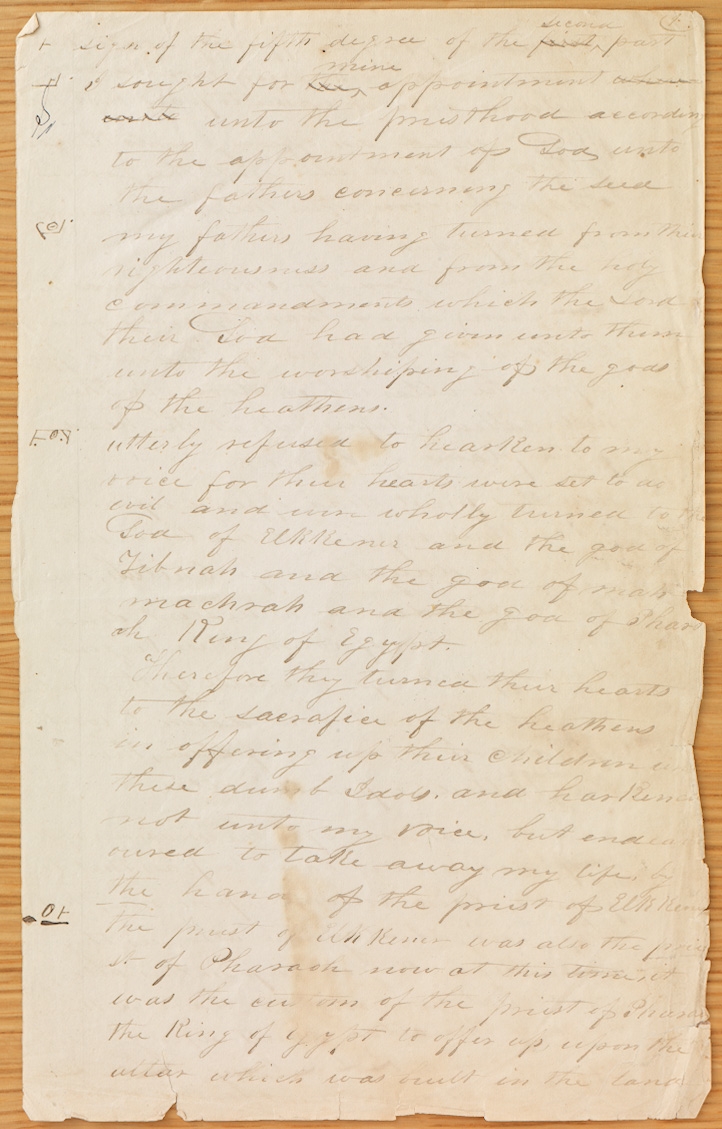 second
sign of the fifth degree of the first part
mine
I sought for the appointment
unto the priesthood according
to the appointment of God unto
the fathers concerning the seed
my fathers having turned from their
righteousness and from the holy
commandments which the Lord
their God had given unto them
unto the worshiping of the gods
of the heathens.
utterly refused to hearken to my
voice for their hearts were set to do
evil and were wholly turned to the
God of Elkkener and the god of
Zibnah and the god of mah-
machrah and the god of Phar
oh King of Egypt.
Therefore they turned their hearts
to the sacrafice of the heathens
in offering up their children
these dumb Idols. and harkened
not unto my voice, but endea
oured to take away my life, by
the hand of the priest of Elkkener
the priest of Elkkener was also the prie
st of Pharaoh now at this time, it
was the custom of the priest of Pharaoh
the King of Egypt to offer up upon the
altar which was built in the land